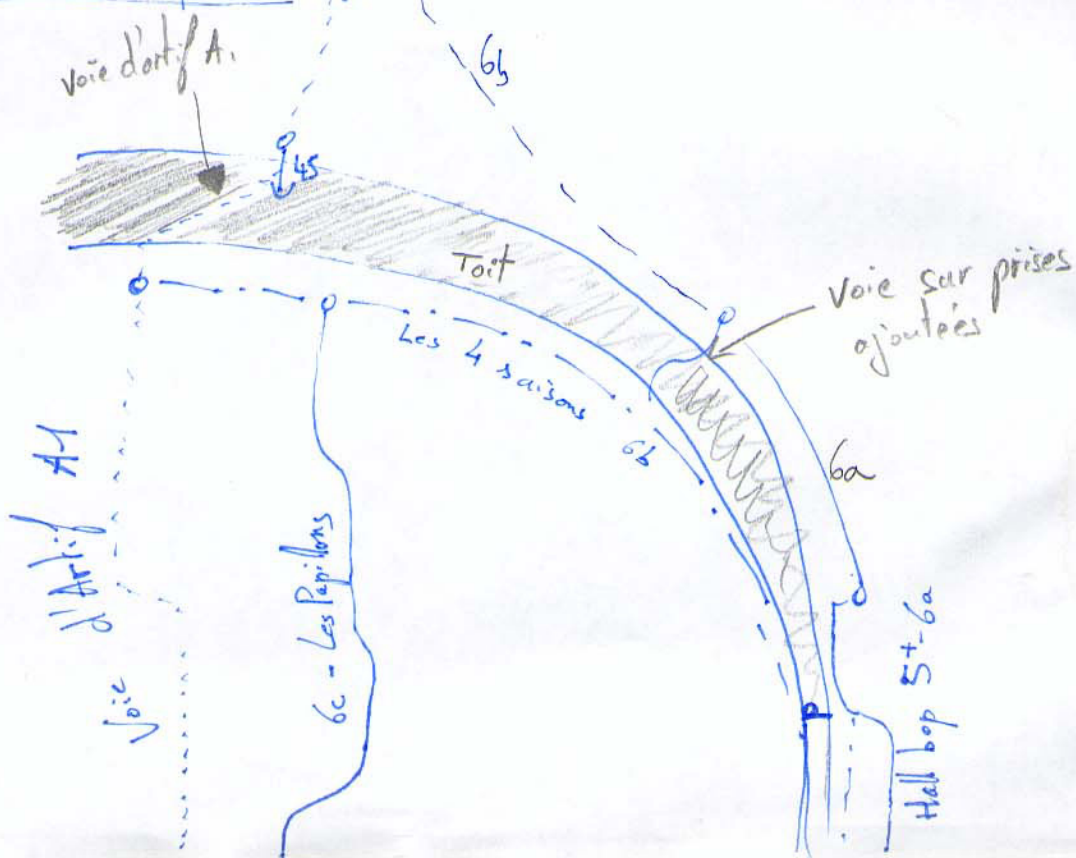 voie d'artif A.
6b
45
Toit
Voie sur prises
ajoutées
Les 4 saisons
6b
6a
Voie d'Artif A-1
6c - Les Papillons
Hall bop 5+-6a